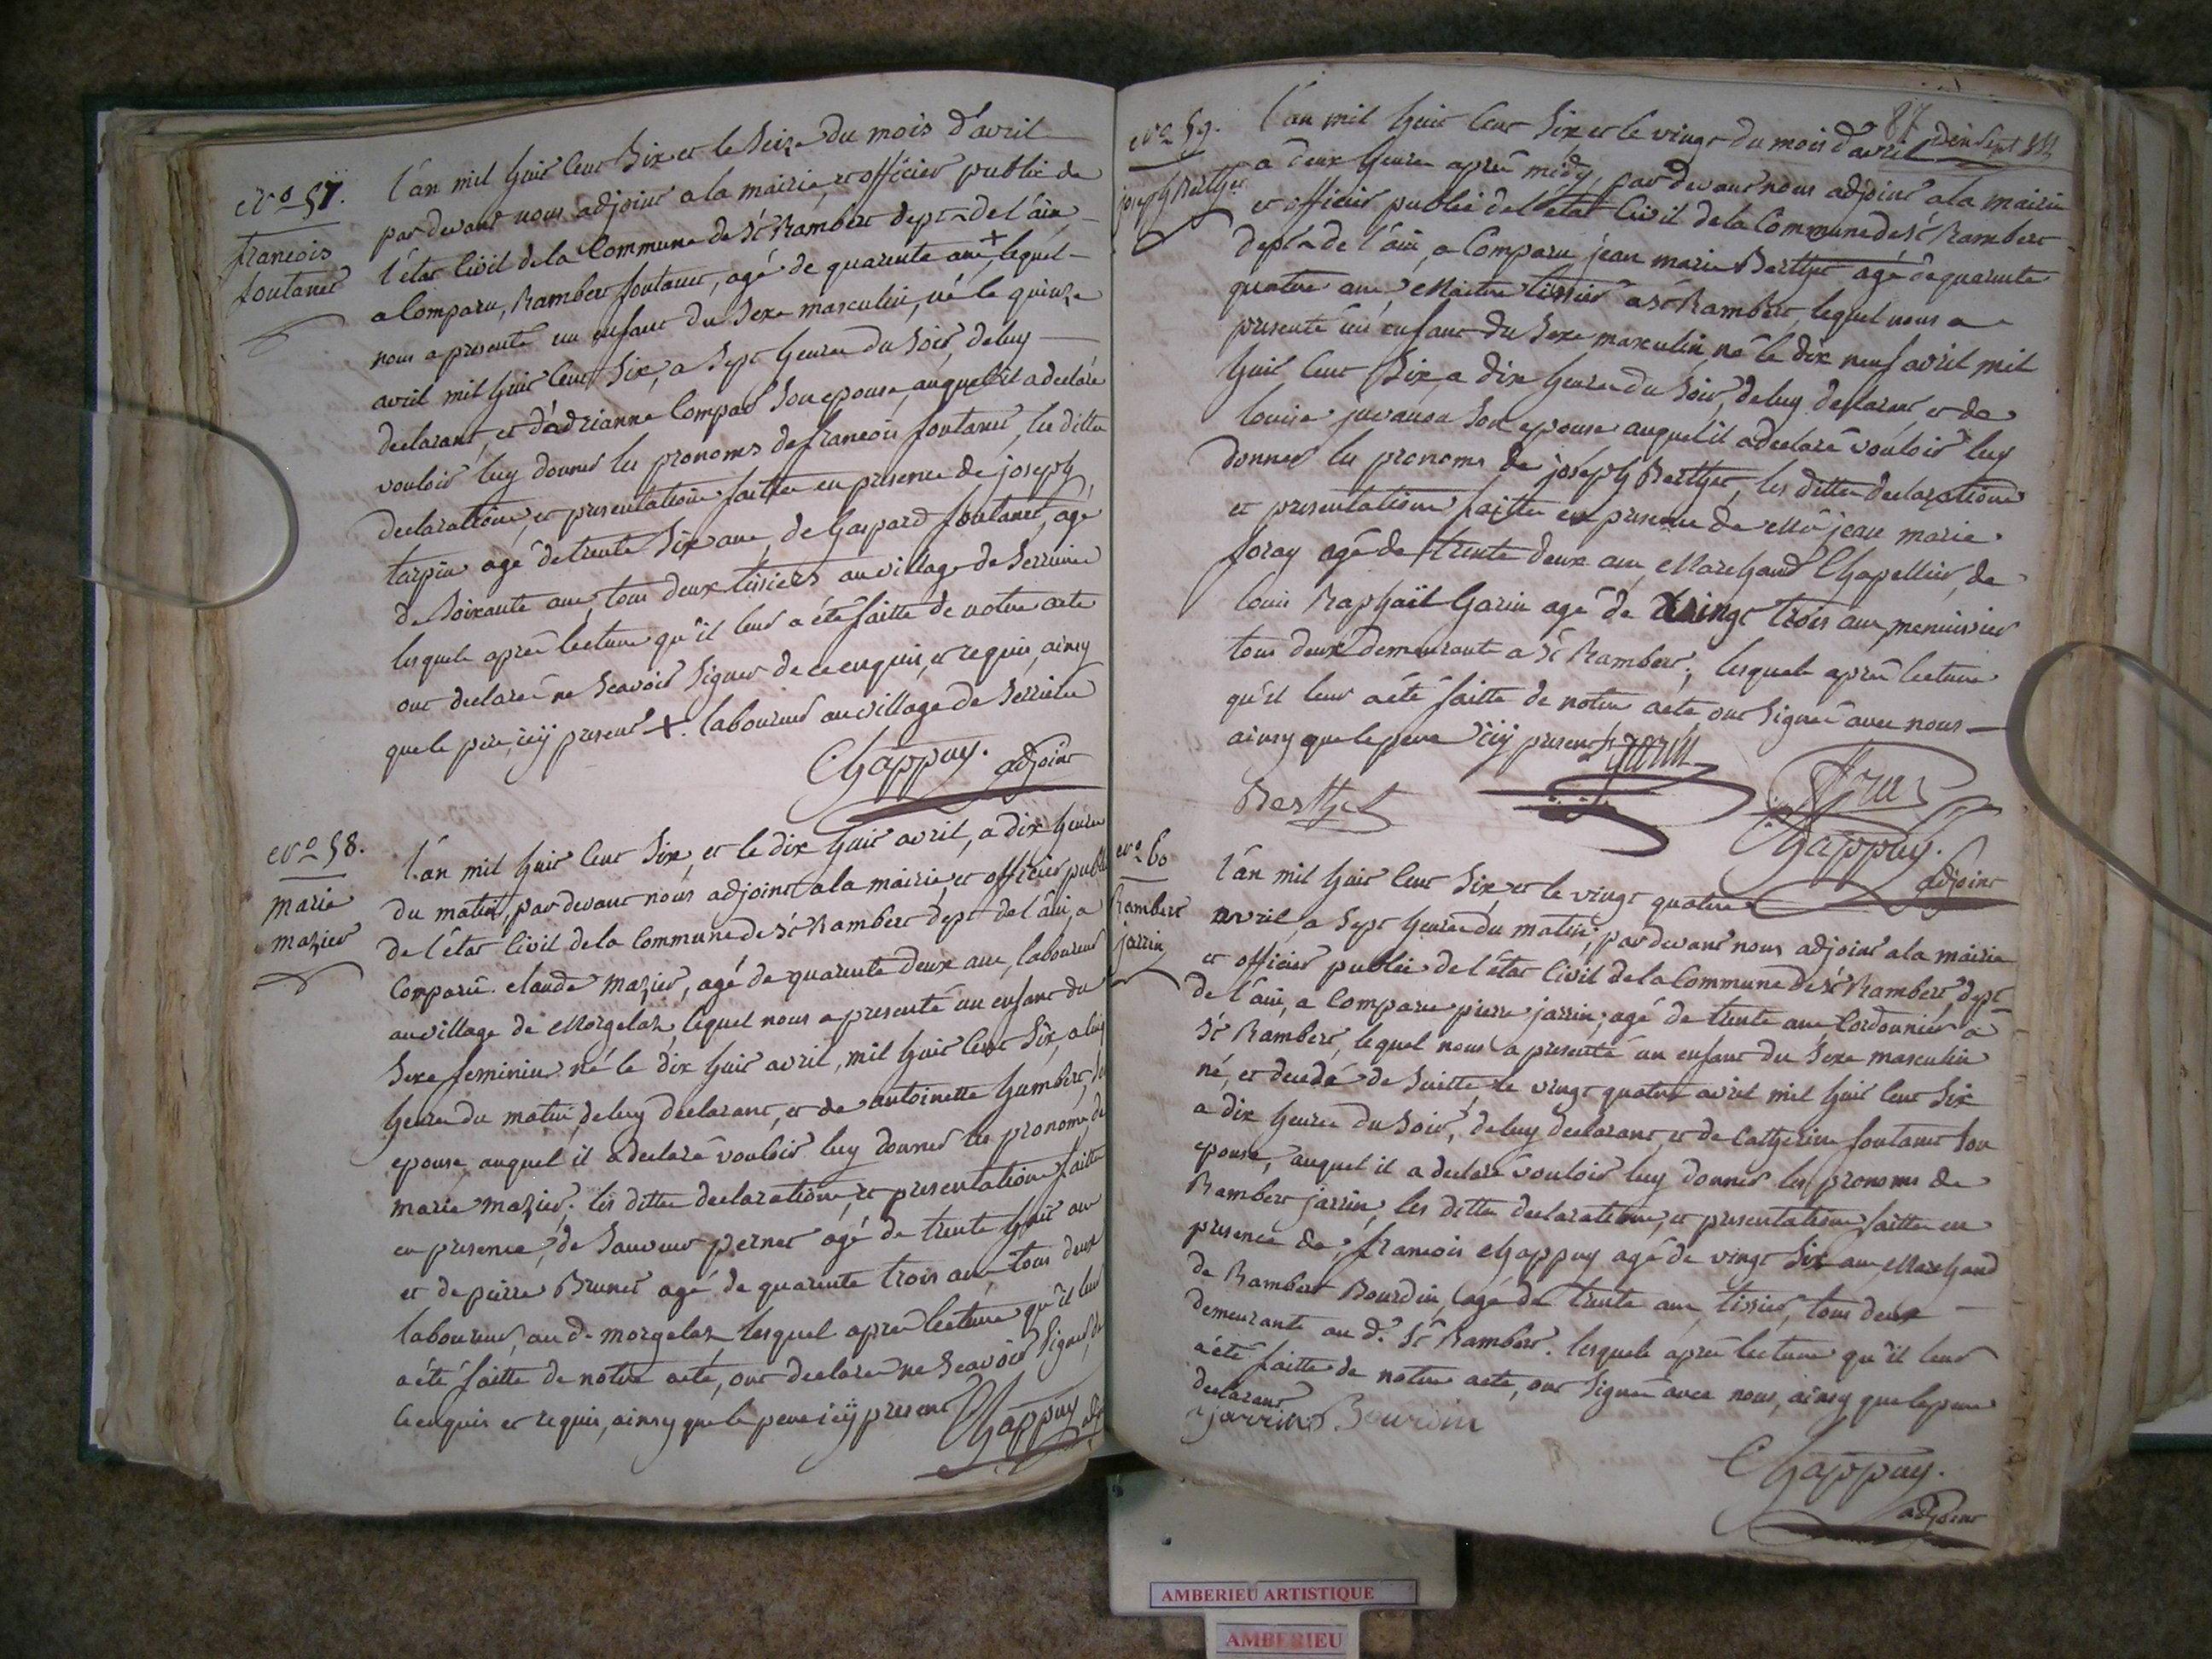 No 57.
francois
fontanet
L'an mil huit cent six et le seize du mois d'avril
par devant nous adjoint a la mairie et officier public de
l'état civil de la commune de St Rambert dept de l'ain
a comparu, Rambert fontanet, agé de quarente ans + lequel
nous a presenté un enfant du sexe masculin, né le quinze
avril mil huit cent six, a sept heures du soir, de luy
declarant, et d'adrianne Compar son epouse, auquel il a declaré
vouloir luy donner les pronoms de francois fontanet, les dittes
declarations, et presentations faittes en presence de joseph
tarpin agé de trente six ans, de Gaspard fontanet, agé
de soixante ans, tous deux tissiers au village de Serrieres
lesquels après lecture qu'il leur a été faitte de notre acte
ont declarés ne scavoir signer de ce enquis, et requis, ainsy
que le pere, icÿ present + laboureur au village de Serriere
Chappuy. adjoint
No 58.
marie
mazier
L'an mil huit cent six, et le dix huit avril, a dix heures
du matin, par devant nous adjoint a la mairie et officier public
de l'état civil de la commune de St Rambert dept de l'ain, a
comparu claude mazier, agé de quarente deux ans, laboureur
au village de Morgelaz, lequel nous a presenté un enfant du
sexe feminin né le dix huit avril, mil huit cent six, a
heures du matin, de luy declarant, et de antoinette humbert,
epouse, auquel il a declaré vouloir luy donner les pronoms de
marie mazier, les dittes declarations, et presentations faittes
en presence, de Sauveur pernet agé de trente huit ans
et de pierre Brunet agé de quarente trois ans, tous deux
laboureurs, au d. morgelaz, lesquel apres lecture qu'il leur
a été faitte de notre acte, ont declarés ne scavoir signer, de
ce enquis et requis, ainsy que le pere icÿ present
Chappuy adjt
87
No 59.
joseph Berthet
L'an mil huit cent six, et le vingt du mois d'avril
a deux heures après midy, par devant nous adjoint a la mairie
et officier public de l'état civil de la commune de St Rambert
dept de l'ain, a comparu jean marie Berthet agé de quarente
quatre ans, Maitre tissier a St Rambert, lequel nous a
presenté un enfant du sexe masculin, né le dix neuf avril mil
huit cent six, a dix heures du soir, de luy declarant et de
louise juvanon son epouse auquel il a declaré vouloir luy
donner les pronoms de joseph Berthet, les dittes declarations
et presentations faittes en presence de Mr jean marie
foray agé de trente deux ans, Marchand Chapellier, de
louis Raphaël Garin agé de vingt trois ans, menuisier
tous deux demeurants a St Rambert, lesquels après lecture
qu'il leur a été faitte de notre acte, ont signés avec nous
ainsy que le pere icÿ present. garin
Berthet
Chappuy.
adjoint
No 60
Rambert
jarrin
L'an mil huit cent six, et le vingt quatre
avril, a sept heures du matin, par devant nous adjoint a la mairie
et officier public de l'état civil de la commune de St Rambert, dept
de l'ain, a comparu pierre jarrin, agé de trente ans Cordonnier a
St Rambert, lequel nous a presenté un enfant du sexe masculin
né, et decedé de suitte, le vingt quatre avril mil huit cent six
a dix heures du soir, de luy declarant, et de Catherine fontanet son
epouse, auquel il a declaré vouloir luy donner les pronoms de
Rambert jarrin, les dittes declarations, et presentations faittes en
presence de, francois Chappuy agé de vingt six ans, Marchand
de Rambert Bourdin, agé de trente ans tissier, tous deux
demeurants au d. St Rambert. lesquels après lecture qu'il leur
a été faitte de notre acte, ont signés avec nous, ainsy que le pere
declarant.
jarrin Bourdin
Chappuy.
adjoint
AMBERIEU ARTISTIQUE
AMBERIEU